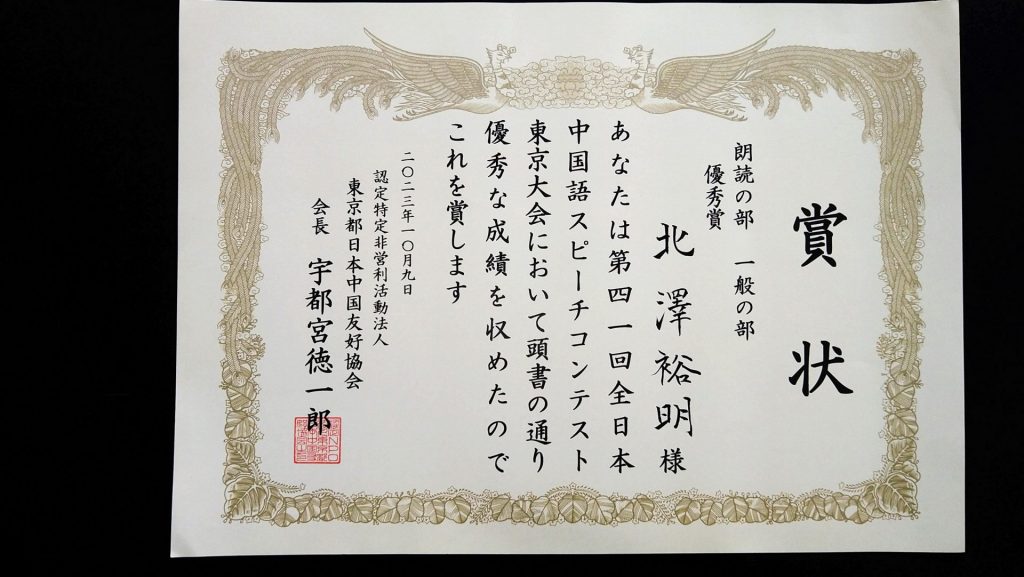 賞状
朗読の部 一般の部
優秀賞
北澤裕明様
あなたは第四一回全日本
中国語スピーチコンテスト
東京大会において頭書の通り
優秀な成績を収めたので
これを賞します
二〇二三年一〇月九日
認定特定非営利活動法人
東京都日本中国友好協会
会長 宇都宮徳一郎